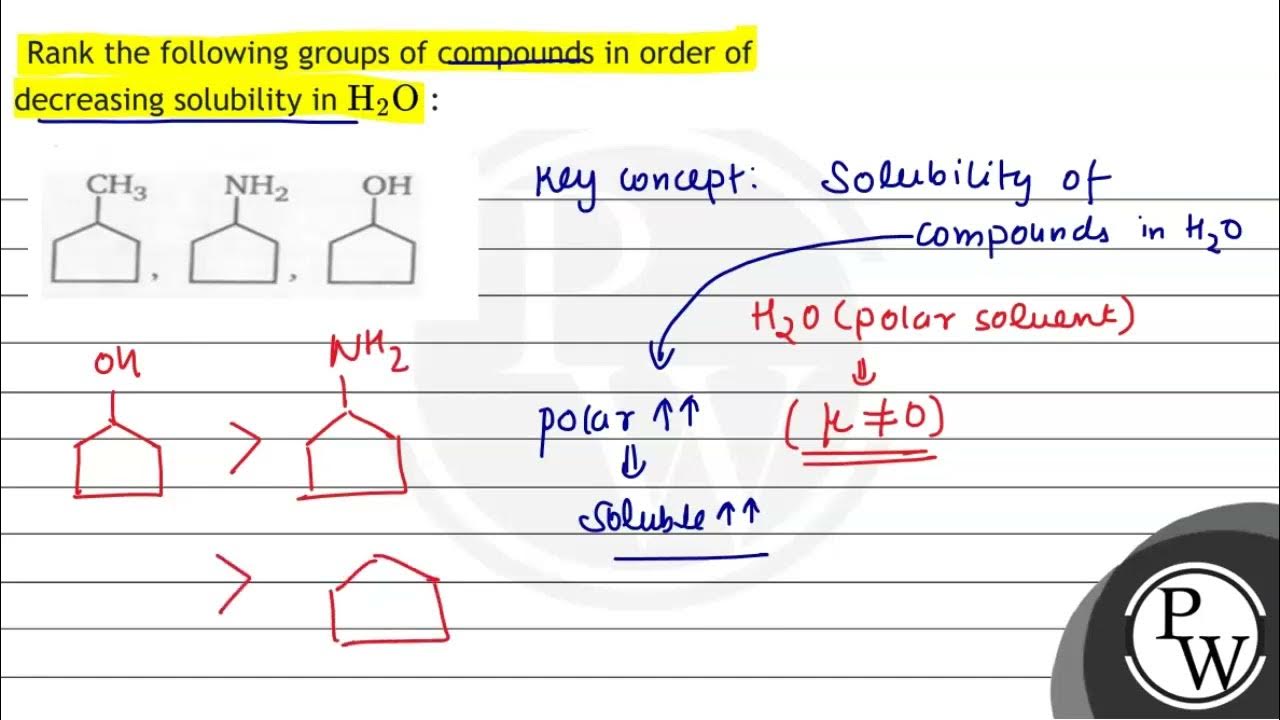 Rank the following groups of compounds in order of
decreasing solubility in H₂O :
CH₃ NH₂ OH
, ,
Key concept: Solubility of
compounds in H₂O
H₂O (polar solvent)
⇓
(μ ≠ 0)
polar ↑↑
⇓
soluble ↑↑
OH > NH₂
>
P
W
PW